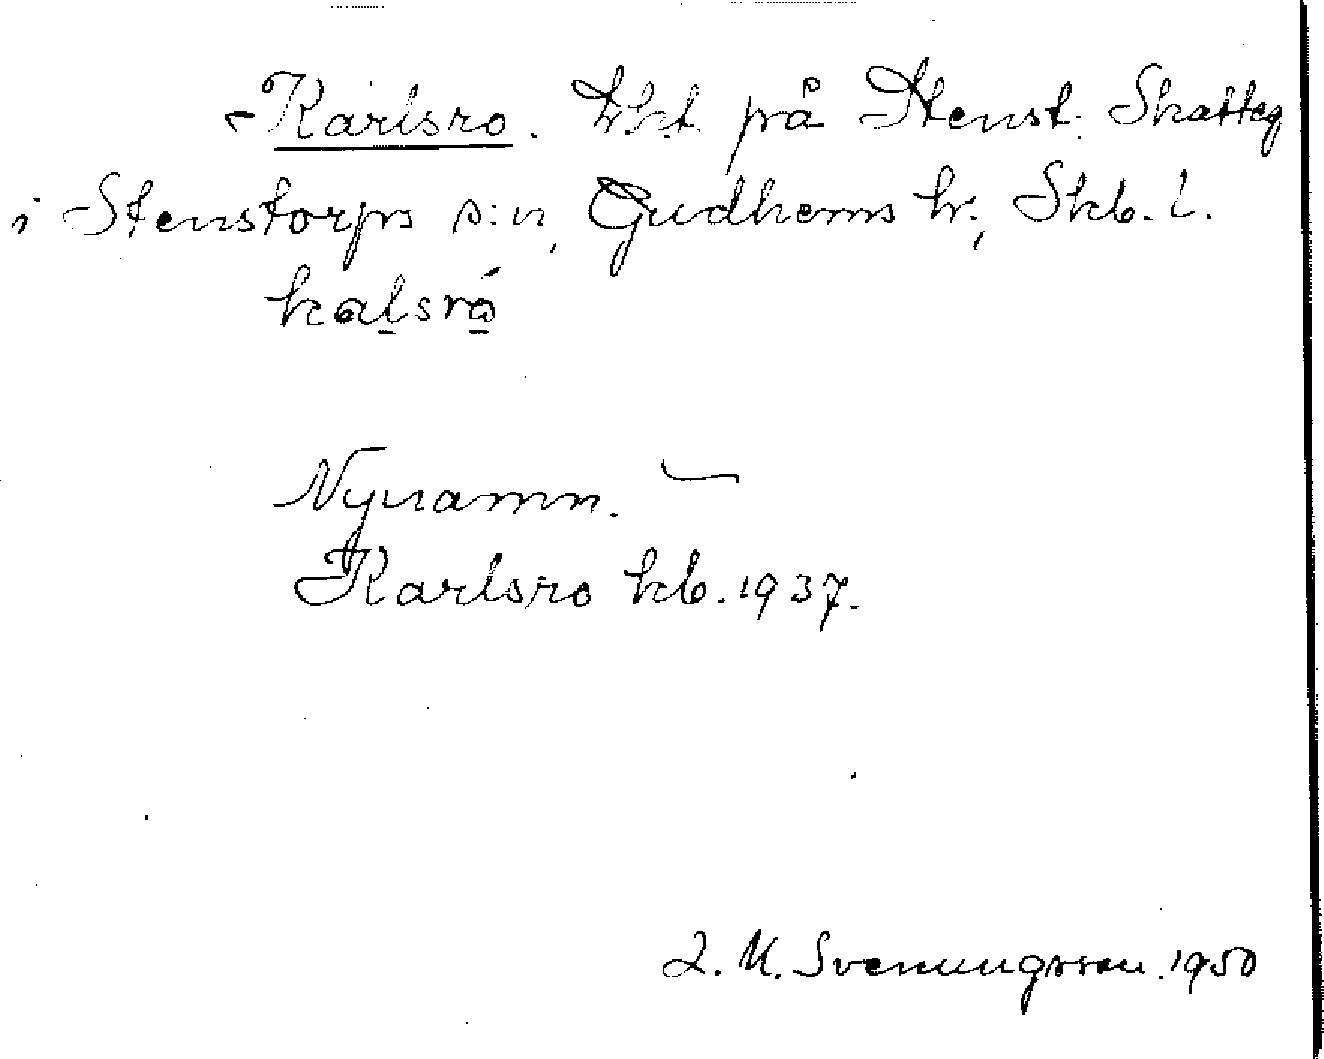 Karlsro. på Stenst. Skatteg
i Stenstorps s:n, Gudhems hr., Skb. l.
kalsró
Nynamn.
Karlsro kb. 1937.
Svenungsson. 1950